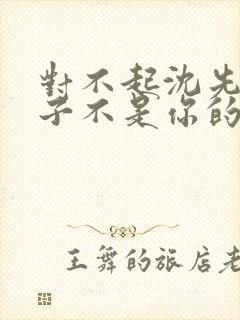 對不起沈先
子不是你的
王舞的旅店老